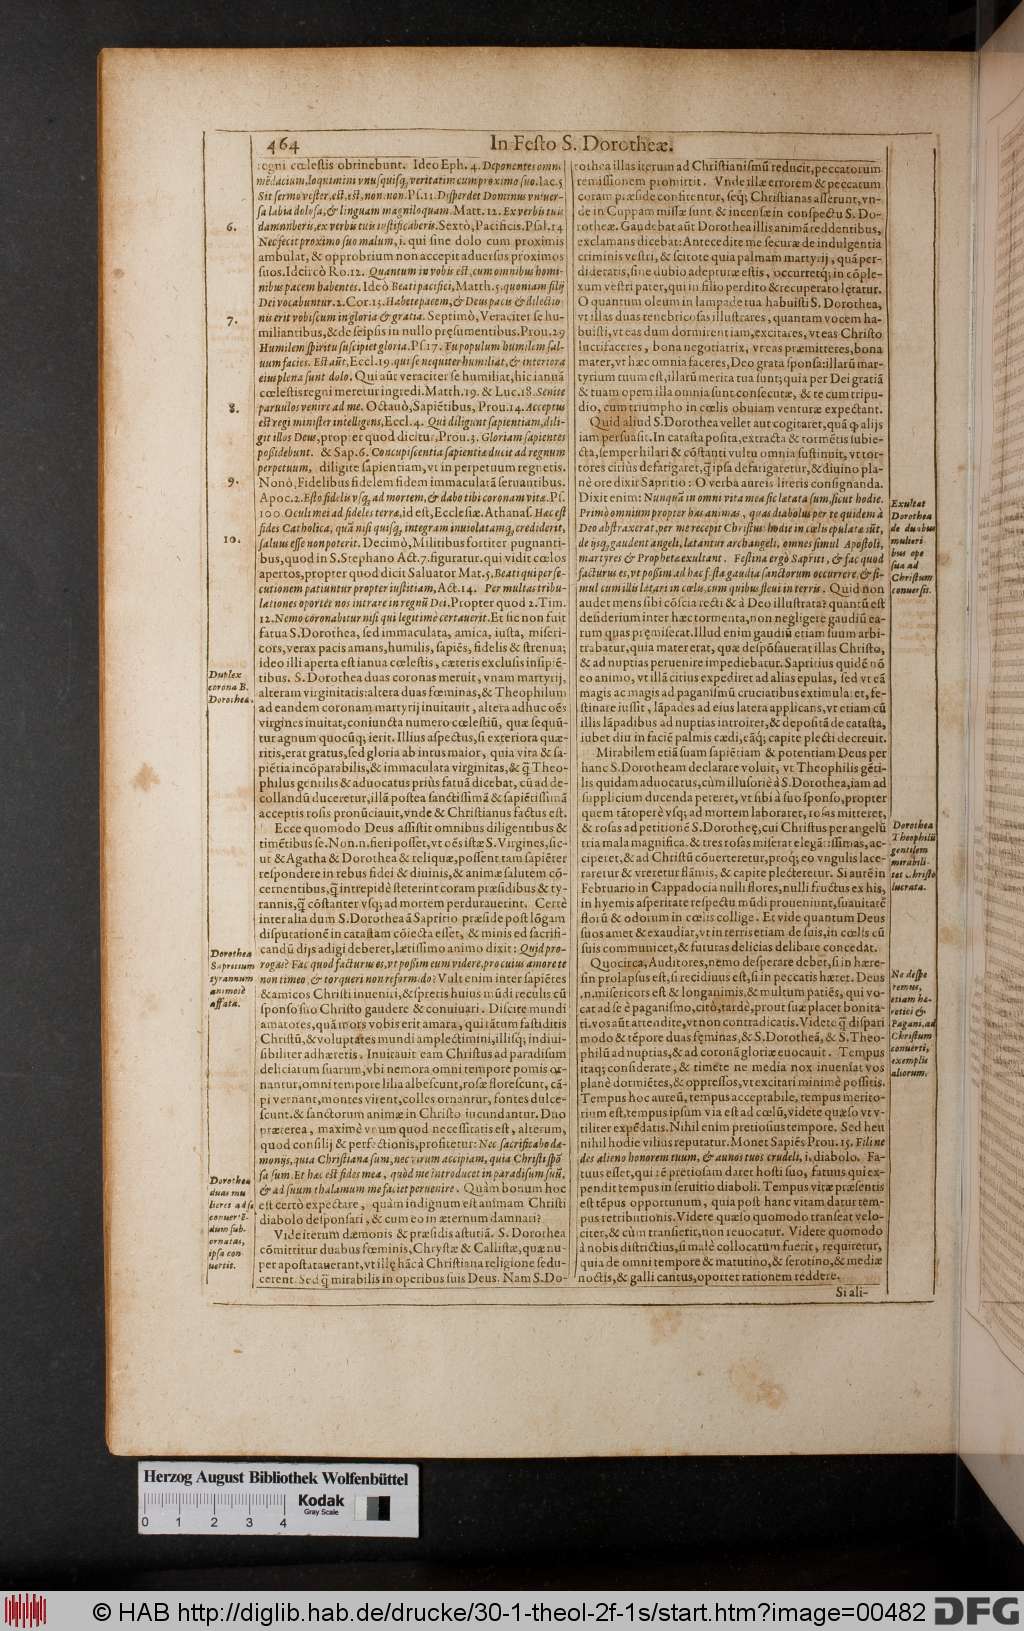 464 In Festo S. Dorotheæ.
regni cœlestis obtinebunt. Ideo Eph. 4. Deponentes omne
mẽdacium, loquimini vnusquisq; veritatem cum proximo suo. Iac. 5
Sit sermo vester, est, est, non, non. Ps. 11. Disperdet Dominus vniuer-
sa labia dolosa, & linguam magniloquam. Matt. 12. Ex verbis tuis
6.
damnaberis, ex verbis tuis iustificaberis. Sextò, Pacificis. Psal. 14
Nec fecit proximo suo malum, i. qui sine dolo cum proximis
ambulat, & opprobrium non accepit aduersus proximos
suos. Idcircò Ro. 12. Quantum in vobis est, cum omnibus homi-
nibus pacem habentes. Ideò Beati pacifici, Matth. 5. quoniam filij
Dei vocabuntur. 2. Cor. 13. Habete pacem, & Deus pacis & dilectio-
7.
nis erit vobiscum in gloria & gratia. Septimò, Veraciter se hu-
miliantibus, & de seipsis in nullo pręsumentibus. Prou. 29
Humilem spiritu suscipiet gloria. Ps. 17. Tu populum humilem sal-
uum facies. Est aũt, Eccl. 19. qui se nequiter humiliat, & interiora
eius plena sunt dolo. Qui aũt veraciter se humiliat, hic ianuã
cœlestis regni meretur ingredi. Matth. 19. & Luc. 18. Sinite
8.
paruulos venire ad me. Octauò, Sapiẽtibus, Prou. 14. Acceptus
est regi minister intelligens, Eccl. 4. Qui diligunt sapientiam, dili-
git illos Deus, propter quod dicitur, Prou. 3. Gloriam sapientes
possidebunt. & Sap. 6. Concupiscentia sapientiæ ducit ad regnum
perpetuum, diligite sapientiam, vt in perpetuum regnetis.
9.
Nonò, Fidelibus fidelem fidem immaculatã seruantibus.
Apoc. 2. Esto fidelis vsq; ad mortem, & dabo tibi coronam vitæ. Ps.
100. Oculi mei ad fideles terræ, id est, Ecclesiæ. Athanas. Hæc est
fides Catholica, quã nisi quisq; integram inuiolatamq; crediderit,
10.
saluus esse non poterit. Decimò, Militibus fortiter pugnanti-
bus, quod in S. Stephano Act. 7. figuratur. qui vidit cœlos
apertos, propter quod dicit Saluator Mat. 5. Beati qui perse-
cutionem patiuntur propter iustitiam, Act. 14. Per multas tribu-
lationes oportet nos intrare in regnũ Dei. Propter quod 2. Tim.
12. Nemo coronabitur nisi qui legitimè certauerit. Et sic non fuit
fatua S. Dorothea, sed immaculata, amica, iusta, miseri-
cors, verax pacis amans, humilis, sapiẽs, fidelis & strenua;
ideo illi aperta est ianua cœlestis, cæteris exclusis insipiẽ-
Duplex
corona B.
Dorotheæ.
tibus. S. Dorothea duas coronas meruit, vnam martyrij,
alteram virginitatis: altera duas fœminas, & Theophilum
ad eandem coronam martyrij inuitauit, altera adhuc oẽs
virgines inuitat, coniuncta numero cœlestiũ, quæ sequũ-
tur agnum quocũq; ierit. Illius aspectus, si exteriora quæ-
ritis, erat gratus, sed gloria ab intus maior, quia vita & sa-
piẽtia incõparabilis, & immaculata virginitas, & q̃ Theo-
philus gentilis & aduocatus priùs fatuã dicebat, cũ ad de-
collandũ duceretur, illã postea sanctissimã & sapiẽtissimã
acceptis rosis pronũciauit, vnde & Christianus factus est.
Ecce quomodo Deus assistit omnibus diligentibus &
timẽtibus se. Non. n. fieri posset, vt oẽs istæ S. Virgines, sic-
ut & Agatha & Dorothea & reliquæ, possent tam sapiẽter
respondere in rebus fidei & diuinis, & animæ salutem cõ-
cernentibus, q̃ intrepidè steterint coram præsidibus & ty-
rannis, q̃ cõstanter vsq; ad mortem perdurauerint. Certè
inter alia dum S. Dorothea à Sapritio præside post lõgam
disputationẽ in catastam cõiecta esset, & minis ed sacrifi-
Dorothea
Sapritium
tyrannum
animosè
affata.
candũ dijs adigi deberet, lætissimo animo dixit: Quid pro-
rogas? Fac quod facturus es, vt possim eum videre, pro cuius amore te
non timeo, & torqueri non reformido? Vult enim inter sapiẽtes
& amicos Christi inueniri, & spretis huius mũdi reculis cũ
sponso suo Christo gaudere & conuiuari. Discite mundi
amatores, quã mors vobis erit amara, qui tãtum fastiditis
Christũ, & voluptates mundi amplectimini, illisq; indiui-
sibiliter adhæretis. Inuitauit eam Christus ad paradisum
deliciatum suarum, vbi nemora omni tempore pomis or-
nantur, omni tempore lilia albescunt, rosæ florescunt, cã-
pi vernant, montes virent, colles ornantur, fontes dulce-
scunt, & sanctorum animæ in Christo iucundantur. Duo
præterea, maximè vnum quod necessitatis est, alterum,
quod consilij & perfectionis, profitetur: Nec sacrificabo dæ-
monijs, quia Christiana sum, nec virum accipiam, quia Christi spõ-
sa sum. Et hæc est fides mea, quòd me introducet in paradisum suũ,
Dorothea
duas mu
lieres ad se
conuertẽ-
dum sub-
ornatas,
ipsa con
uertit.
& ad suum thalamum me faciet peruenire. Quàm bonum hoc
est certò expectare, quàm indignum est animam Christi
diabolo desponsari, & cum eo in æternum damnari?
Vide iterum dæmonis & præsidis astutiã. S. Dorothea
cõmittitur duabus fœminis, Chrystæ & Callistæ, quæ nu-
per apostatauerant, vt illę hãc à Christiana religione sedu-
cerent. Sed q̃ mirabilis in operibus suis Deus. Nam S. Do-
rothea illas iterum ad Christianismũ reducit, peccatorum
remissionem promittit. Vnde illæ errorem & peccatum
coram præside confitentur, seq; Christianas asserunt, vn-
de in Cuppam missæ sunt & incensæ in conspectu S. Do-
rotheæ. Gaudebat aũt Dorothea illis animã reddentibus,
exclamans dicebat: Antecedite me securæ de indulgentia
criminis vestri, & scitote quia palmam martyrij, quã per-
dideratis, sine dubio adepturæ estis, occurretq; in cõple-
xum vestri pater, qui in filio perdito & recuperato lętatur.
O quantum oleum in lampade tua habuisti S. Dorothea,
vt illas duas tenebricosas illustrares, quantam vocem ha-
buisti, vt eas dum dormirent iam, excitares, vt eas Christo
lucrifaceres, bona negotiatrix, vt eas præmitteres, bona
mater, vt hæc omnia faceres, Deo grata sponsa: illarũ mar-
tyrium tuum est, illarũ merita tua sunt; quia per Dei gratiã
& tuam opem illa omnia sunt consecutæ, & te cum tripu-
dio, cum triumpho in cœlis obuiam venturæ expectant.
Quid aliud S. Dorothea vellet aut cogitaret, quã q̃ alijs
iam persuasit. In catasta posita, extracta & tormẽtis subie-
cta, semper hilari & cõstanti vultu omnia sustinuit, vt tor-
tores citiùs defatigaret, q̃ ipsa defatigaretur, & diuino pla-
nè ore dixit Sapritio: O verba aureis literis consignanda.
Exultat
Dorothea
de duabus
mulieri
bus ope
sua ad
Christum
conuersis.
Dixit enim: Nunquã in omni vita mea sic lætata sum, sicut hodie.
Primò omnium propter has animas, quas diabolus per te quidem à
Deo abstraxerat, per me recepit Christus: hodie in cœlis epulatæ sũt,
de ijsq; gaudent angeli, lætantur archangeli, omnes simul Apostoli,
martyres & Prophetæ exultant. Festina ergò Sapriti, & fac quod
facturus es, vt possim ad hæc festa gaudia sanctorum occurrere, & si-
mul cum illis lætari in cœlis, cum quibus fleui in terris. Quid non
audet mens sibi cõscia recti & à Deo illustrata? quantũ est
desiderium inter hæc tormenta, non negligere gaudiũ ea-
rum quas pręmiserat. Illud enim gaudiũ etiam suum arbi-
trabatur, quia mater erat, quæ despõsauerat illas Christo,
& ad nuptias peruenire impediebatur. Sapritius quidẽ nõ
eo animo, vt illã citius expediret ad alias epulas, sed vt eã
magis ac magis ad paganismũ cruciatibus extimularet, fe-
stinare iussit, lãpades ad eius latera applicans, vt etiam cũ
illis lãpadibus ad nuptias introiret, & depositã de catasta,
iubet diu in faciẽ palmis cædi, eãq; capite plecti decreuit.
Mirabilem etiã suam sapiẽtiam & potentiam Deus per
hanc S. Dorotheam declarare voluit, vt Theophilis gẽti-
lis quidam aduocatus, cùm illusoriè à S. Dorothea, iam ad
supplicium ducenda peteret, vt sibi à suo sponso, propter
quem tãtoperè vsq; ad mortem laboraret, rosas mitteret,
Dorothea
Theophilũ
gentilem
mirabili-
ter Christo
lucrata.
& rosas ad petitionẽ S. Dorotheę, cui Christus per angelũ
tria mala magnifica, & tres rosas miserat elegãtissimas, ac-
ciperet, & ad Christũ cõuerteretur, proq; eo vngulis lace-
raretur & vreretur flãmis, & capite plecteretur. Si autẽ in
Februario in Cappadocia nulli flores, nulli fructus ex his,
in hyemis asperitate respectu mũdi proueniunt, suauitatẽ
florũ & odorum in cœlis collige. Et vide quantum Deus
suos amet & exaudiat, vt in terris etiam de suis, in cœlis cũ
suis communicet, & futuras delicias delibare concedat.
Ne despe
remus,
etiam hæ-
retici &
Pagani, ad
Christum
conuerti,
exemplis
aliorum.
Quocirca, Auditores, nemo desperare debet, si in hære-
sin prolapsus est, si recidiuus est, si in peccatis hæret. Deus
.n. misericors est & longanimis, & multum patiẽs, qui vo-
cat ad se è paganismo, citò, tardè, prout suæ placet bonita-
ti. vos aũt attendite, vt non contradicatis. Videte q̃ dispari
modo & tẽpore duas fęminas, & S. Dorotheã, & S. Theo-
philũ ad nuptias, & ad coronã gloriæ euocauit. Tempus
itaq; considerate, & timete ne media nox inueniat vos
planè dormiẽtes, & oppressos, vt excitari minimè possitis.
Tempus hoc aureũ, tempus acceptabile, tempus merito-
rium est, tempus ipsum via est ad cœlũ, videte quæso vt v-
tiliter expẽdatis. Nihil enim pretiosius tempore. Sed heu
nihil hodie vilius reputatur. Monet Sapiẽs Prou. 15. Fili ne
des alieno honorem tuum, & annos tuos crudeli, i. diabolo. Fa-
tuus esset, qui rẽ pretiosam daret hosti suo, fatuus qui ex-
pendit tempus in seruitio diaboli. Tempus vitæ præsentis
est tẽpus opportunum, quia post hanc vitam datur tem-
pus retributionis. Videte quæso quomodo transeat velo-
citer, & cùm transierit, non reuocatur. Videte quomodo
à nobis districtius, si malè collocatum fuerit, requiretur,
quia de omni tempore & matutino, & serotino, & mediæ
noctis, & galli cantus, oportet rationem reddere.
Si ali-
Herzog August Bibliothek Wolfenbüttel
Kodak
Gray Scale
0 1 2 3 4
© HAB http://diglib.hab.de/drucke/30-1-theol-2f-1s/start.htm?image=00482
DFG